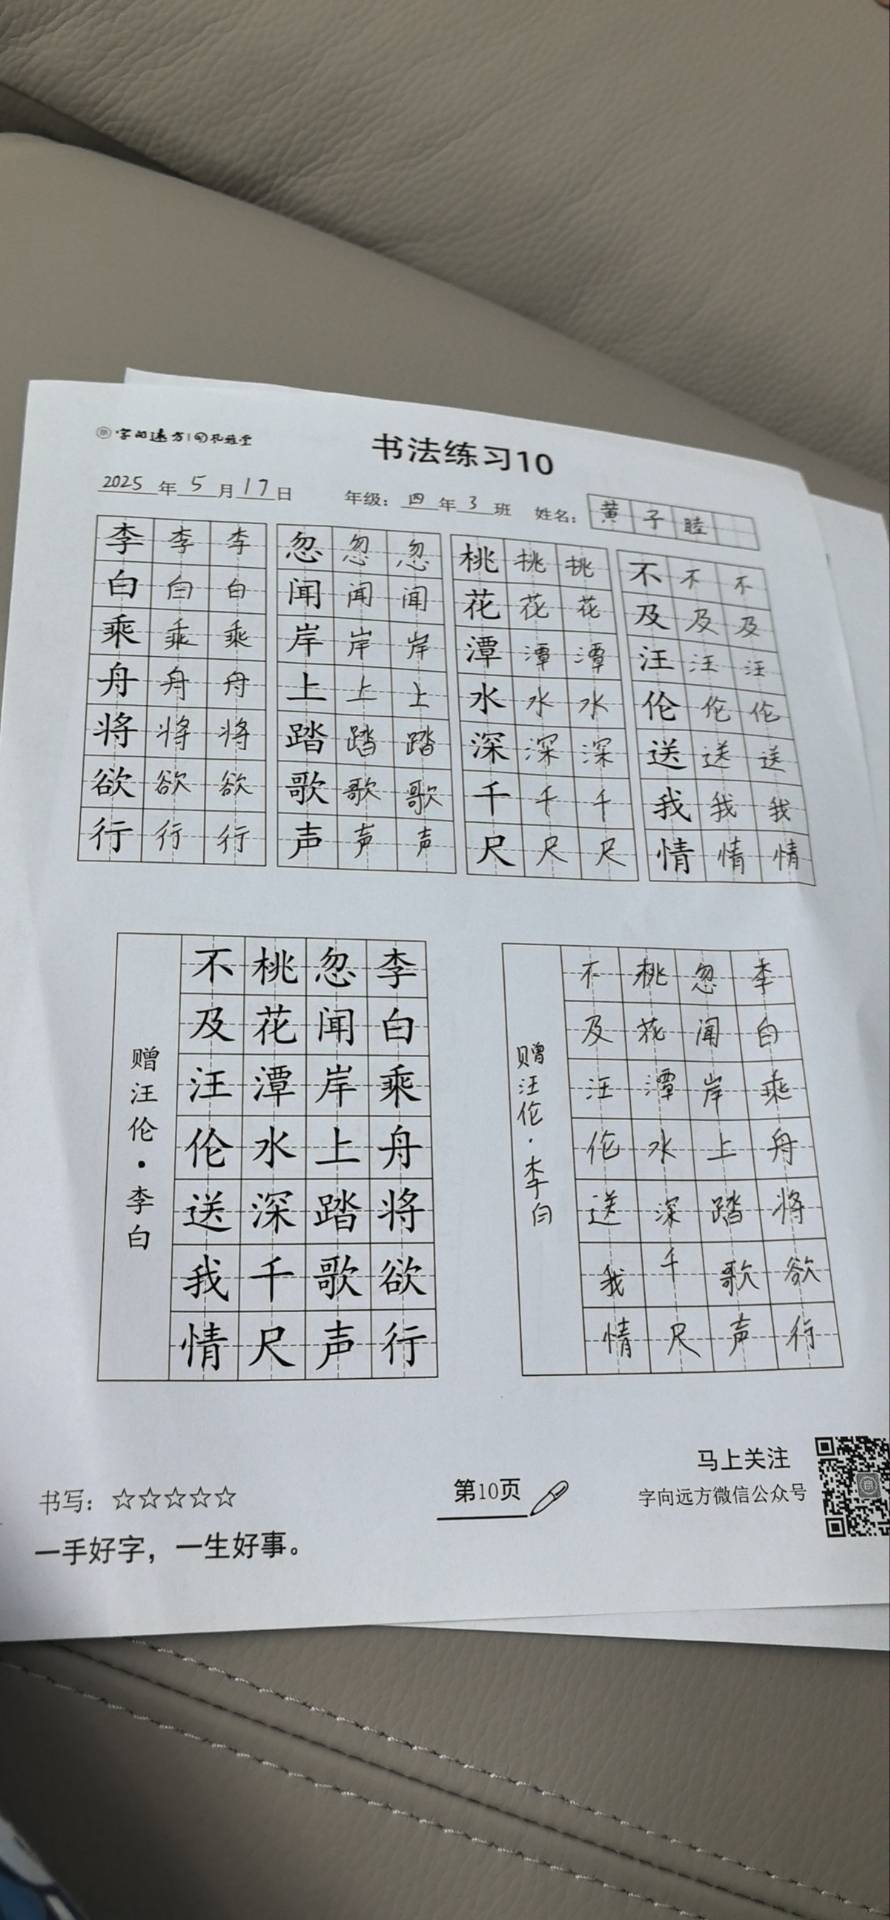 字向远方
书法练习10
2025年5月17日 年级：四年3班 姓名：黄子睦
李李李 忽忽忽 桃桃桃 不不不
白白白 闻闻闻 花花花 及及及
乘乘乘 岸岸岸 潭潭潭 汪汪汪
舟舟舟 上上上 水水水 伦伦伦
将将将 踏踏踏 深深深 送送送
欲欲欲 歌歌歌 千千千 我我我
行行行 声声声 尺尺尺 情情情
李白乘舟将欲行
忽闻岸上踏歌声
桃花潭水深千尺
不及汪伦送我情
赠汪伦·李白
李白乘舟将欲行
忽闻岸上踏歌声
桃花潭水深千尺
不及汪伦送我情
赠汪伦·李白
书写：☆☆☆☆☆
一手好字，一生好事。
第10页
马上关注
字向远方微信公众号